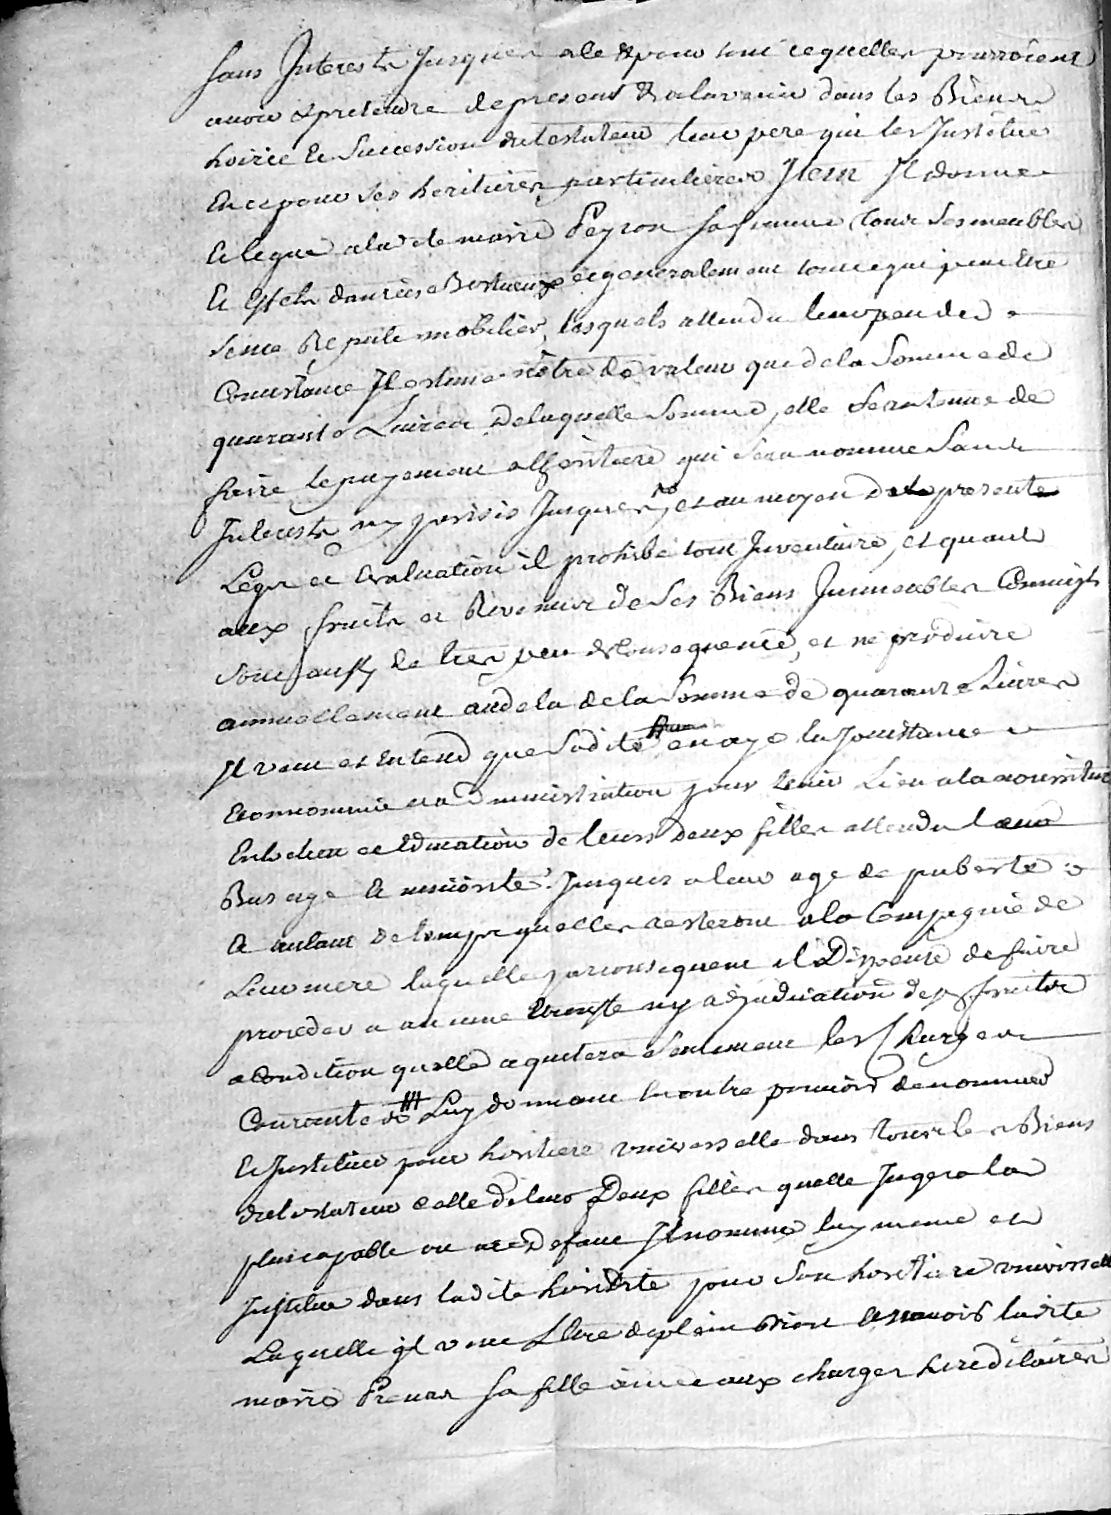 sans Interests Jusques ale & pour tout ce quelles pourroient
avoir & pretendre de present & alavenir dans les Biens
hoirie & Succession du testateur leur pere qui les Institue
En ce pour ses heritieres particulieres Item Il donne
& legue a la de marie Peyron sa femme tous ses meubles
& effets danrées Bestiaux et generalement tout ce qui peut Etre
sensé Reputé mobilier, lesquels attendu leur peu de
Consistance Il estime nêtre de valeur que de la Somme de
quarante Livres de laquelle Somme, elle sera tenue de
faire le payement alheritiere qui sera nommée Sans
Interests ny jusques et au moyen de la presente
Legs et Evaluation il prohibe tout Inventaire, et quant
aux fruits et Revenus de ses Biens Immeubles Comme ils
sont aussy de tres peu de Consequence, et ne produire
annuellement audela de la Somme de quarante Livres
Il veut et Entend que Sadite en aye la Jouissance
Economie et administration pour tenir Lieu a la nourriture
Entretien et Education de leurs deux filles attendu leur
Bas age & minorité Jusques a leur age de puberté
& autant de temps quelles resteront a la Compagnie de
Leur mere laquelle par consequent il Dispense de faire
proceder a aucune Enqueste ny adjudication des fruits
a Condition quelle aquitera Seulement les Charges
Courantes Luy donnant en outre pouvoir de nommer
& Instituer pour heritiere universelle dans tous les Biens
du testateur celle de leurs Deux filles quelle Jugera la
plus capable ou a ce Defaut Il nomme luy meme et
Institue dans ladite heredité pour Son heritiere universelle
Laquelle il veut Etre de plein droit ladite
marie sa fille ainée aux charges hereditaires